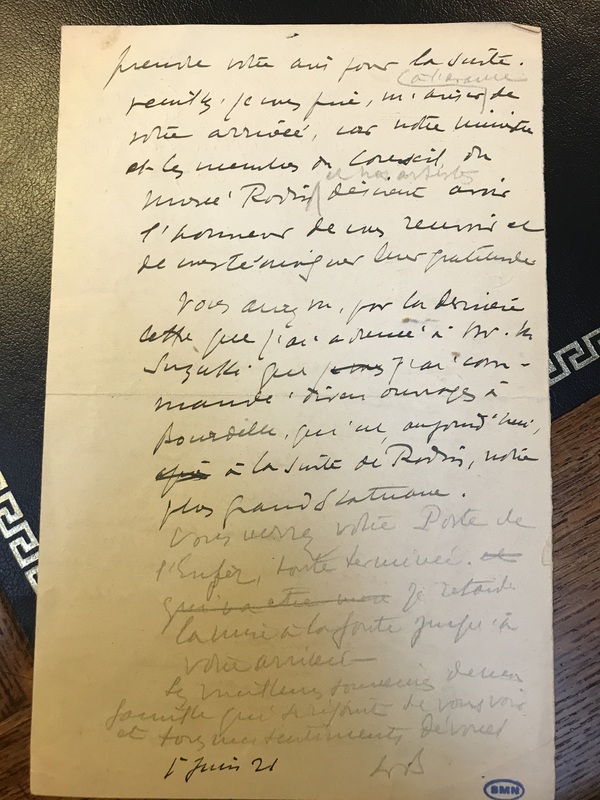 prendre votre avis pour la suite.
(à l'avance
veuillez, je vous prie, m'aviser de
votre arrivée, car notre ministre
et les membres du Conseil du
et nos artistes
Musée Rodin désirent avoir
l'honneur de vous recevoir et
de vous témoigner leur gratitude
Vous avez vu, par la dernière
lettre que j'ai adressée à Mr. K
Suzuki que vous j'ai com-
mandé divers ouvrages à
Bourdelle, qui est, aujourd'hui,
à la suite de Rodin, notre
plus grand Statuaire.
Vous verrez votre Porte de
l'Enfer, toute terminée. et
qui va être je retarde
la mise à la fonte jusqu'à
votre arrivée
Les meilleurs souvenirs de ma
famille qui se réjouit de vous voir
et tous mes sentiments dévoués
1r Juin 21
LB
BMN